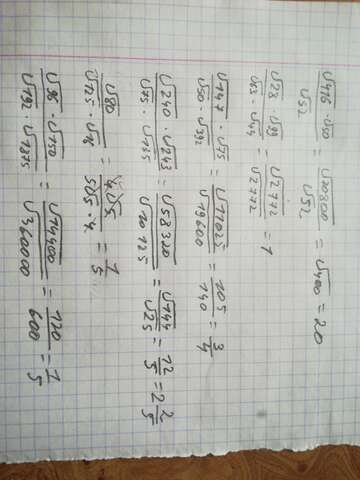 √416 · √50 / √52 = √20800 / √52 = √400 = 20
√28 · √99 / √63 · √44 = √2772 / √2772 = 1
√147 · √75 / √50 · √392 = √11025 / √19600 = 105 / 140 = 3/4
√240 · √243 / √75 · √135 = √58320 / √10125 = √144 / √25 12/5 = 2 2/5
√80 / √125 · √16 = 4√5 / 5√5 · 4 = 1/5
√96 · √150 / √192 · √1875 = √14400 / √360000 = 120 / 600 = 1/5